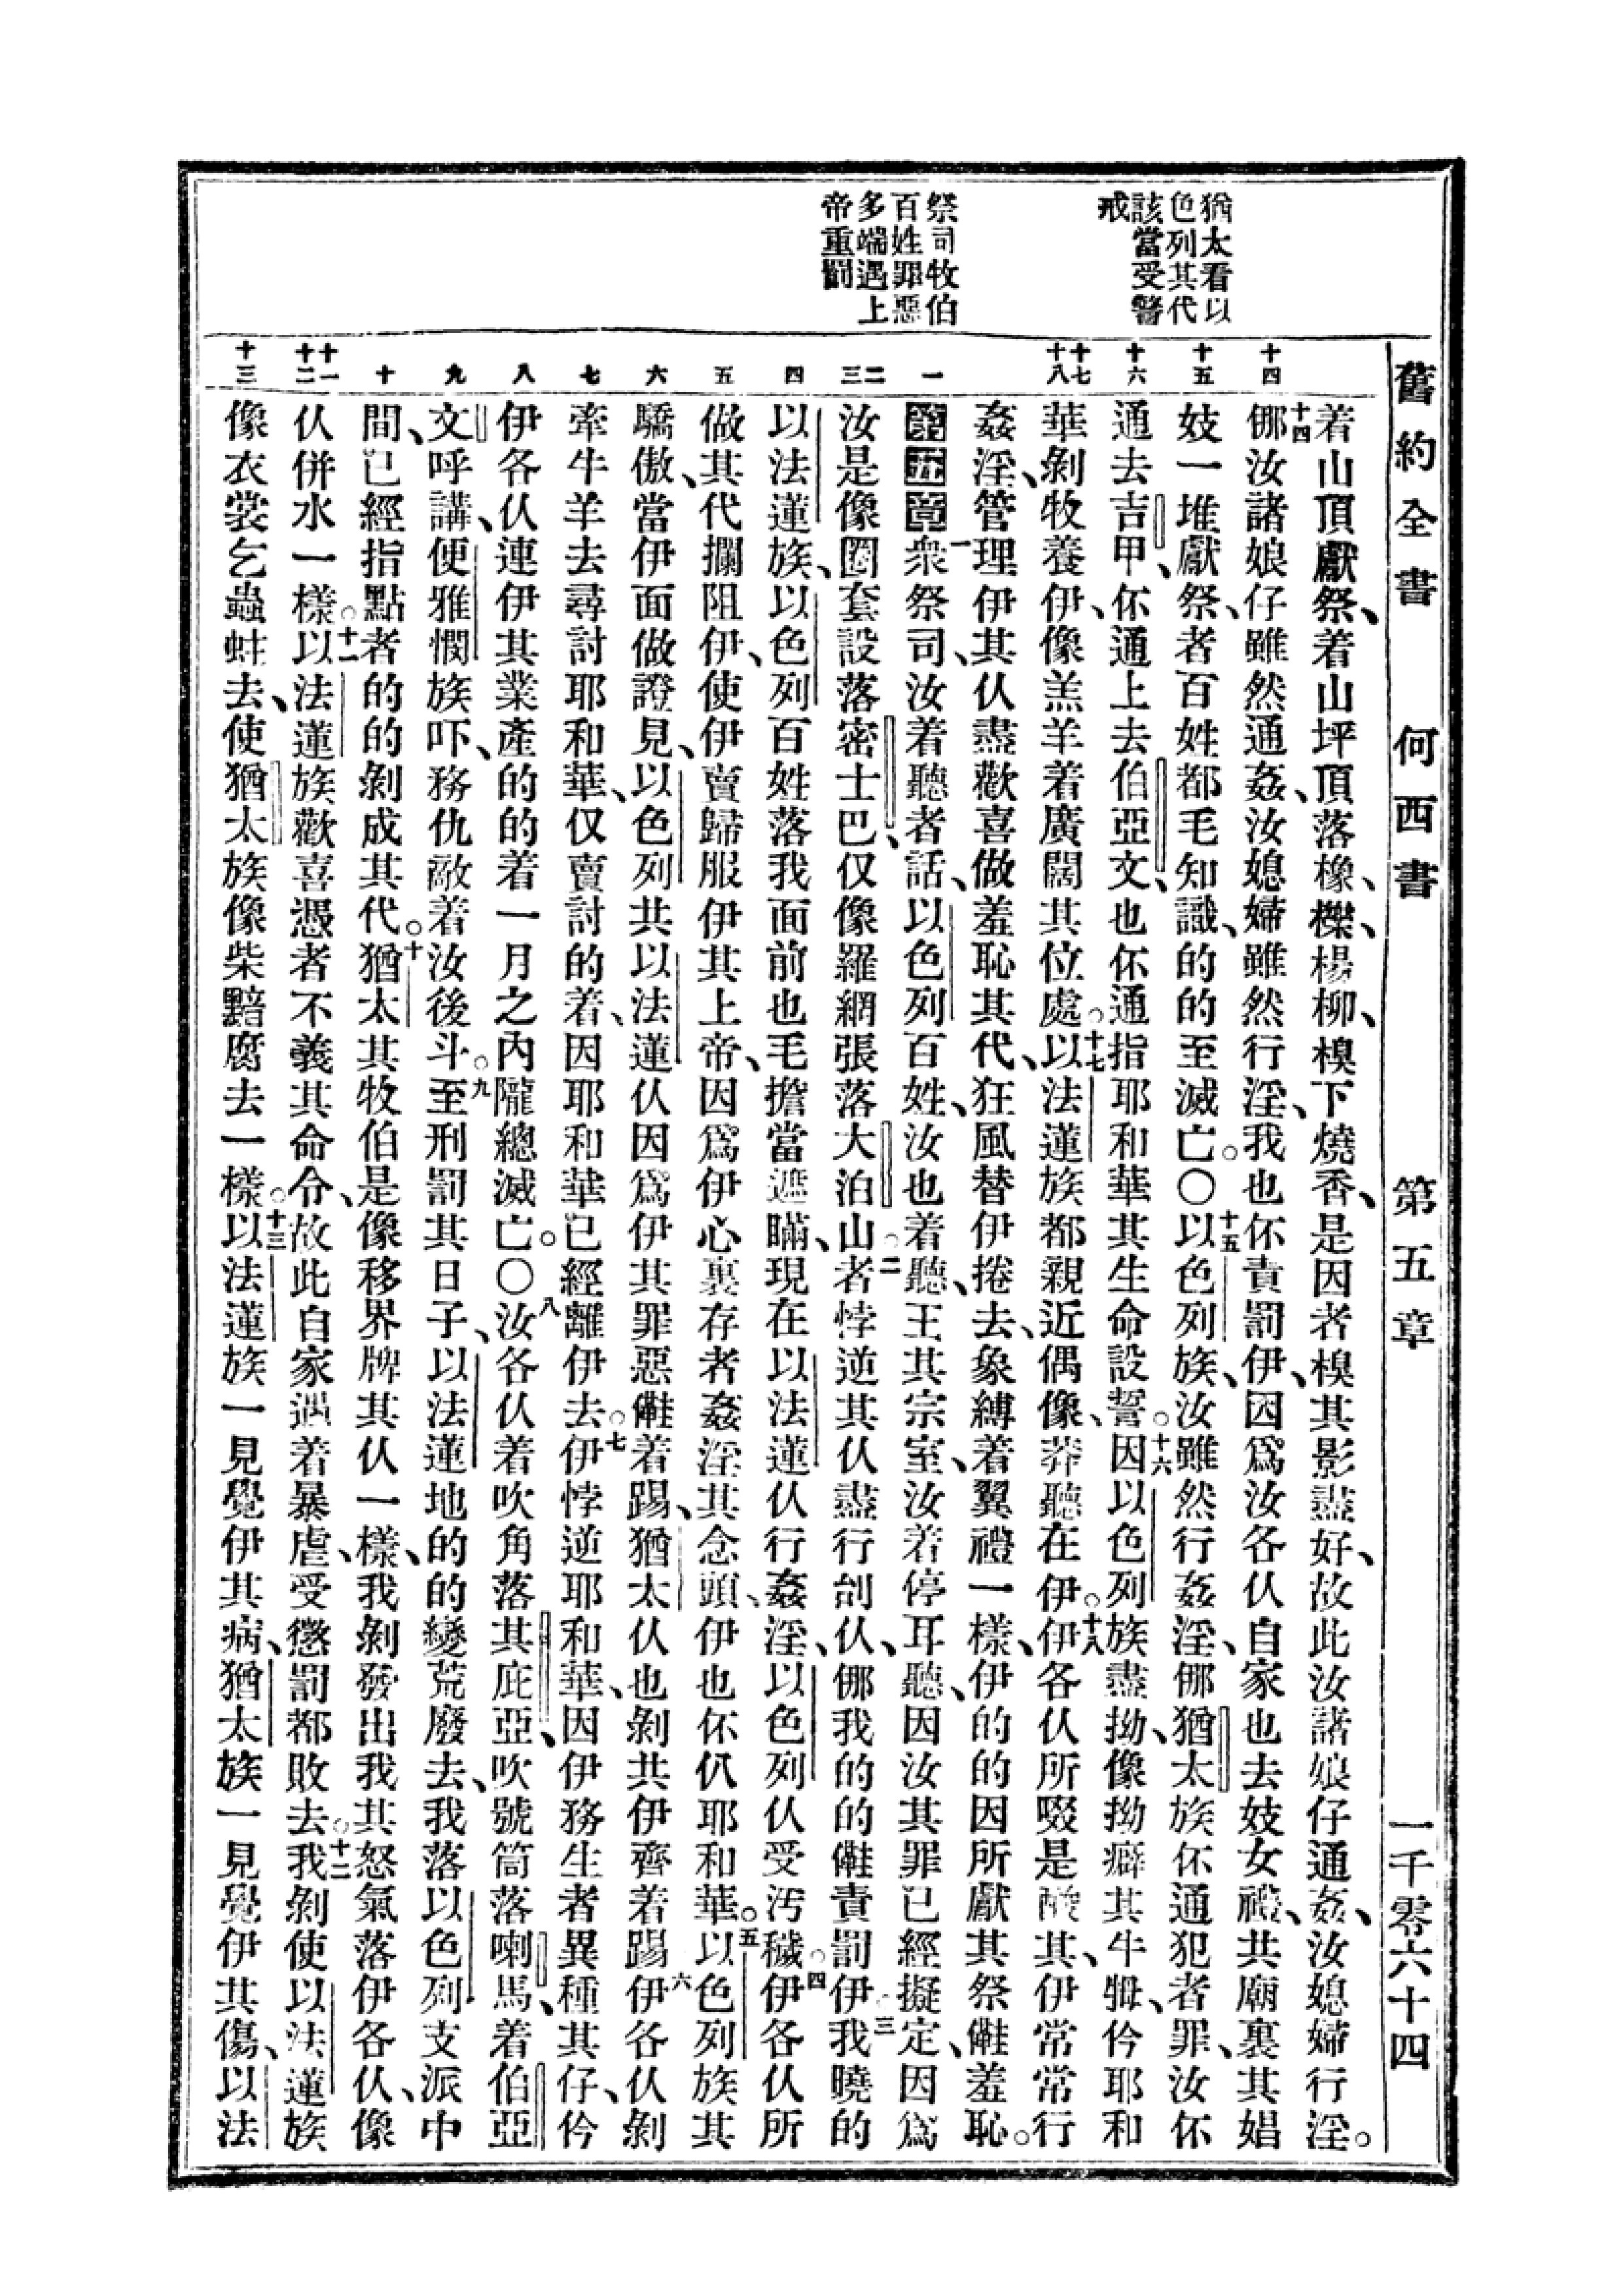 舊約全書　何西書　第五章　一千零六十四
猶太看以
色列其代
該當受警
戒
祭司牧伯
百姓罪惡
多端遇上
帝重罰
着山頂獻祭、着山坪頂落橡、櫟、楊柳、模下燒香、是因者模其影盡好、故此汝諸娘仔通姦、汝媳婦行淫。
十四 㑚汝諸娘仔雖然通姦、汝媳婦雖然行淫、我也伓責罰伊、因爲汝各仈自家也去妓女禮、共廟裏其娼
十五 妓一堆獻祭、者百姓都毛知識、的的至滅亡。○十五以色列族、汝雖然行姦淫、㑚猶太族伓通犯者罪、汝伓
十六 通去吉甲、伓通上去伯亞文、也伓通指耶和華其生命設誓。十六因以色列族盡拗、像拗癖其牛牳、仱耶和
十七 十八 華剝牧養伊、像羔羊着廣闊其位處。十七以法蓮族都親近偶像、莽聽在伊。十八伊各仈所啜是酸其、伊常常行
姦淫、管理伊其仈盡歡喜做羞恥其代、狂風替伊捲去、象縛着翼禮一樣、伊的的因所獻其祭㒕羞恥。
一 第五章 一衆祭司、汝着聽者話、以色列百姓、汝也着聽、王其宗室、汝着停耳聽、因汝其罪已經擬定、因爲
二 三 汝是像圈套設落密士巴、仅像羅網張落大泊山。二者悖逆其仈盡行刣仈、㑚我的的㒕責罰伊。三我曉的
四 以法蓮族、以色列百姓落我面前也毛擔當遮瞞、現在以法蓮仈行姦淫、以色列仈受汚穢。四伊各仈所
五 做其代攔阻伊、使伊賣歸服伊其上帝、因爲伊心裏存者姦淫其念頭、伊也伓伬耶和華。五以色列族其
六 驕傲、當伊面做證見、以色列共以法蓮仈因爲伊其罪惡㒕着踢、猶太仈也剝共伊齊着踢。六伊各仈剝
七 牽牛羊去尋討耶和華、仅賣討的着、因耶和華已經離伊去。七伊悖逆耶和華、因伊務生者異種其仔、仱
八 伊各仈連伊其業產的的着一月之內隴總滅亡。○八汝各仈着吹角落其庇亞、吹號筒落喇馬、着伯亞
九 文呼講、便雅憫族吓、務仇敵着汝後斗。九至刑罰其日子、以法蓮地的的變荒廢去、我落以色列支派中
十 間、已經指點者的的剝成其代。十猶太其牧伯是像移界牌其仈一樣、我剝發出我其怒氣落伊各仈、像
十一 十二 仈併水一樣。十一以法蓮族歡喜憑者不義其命令、故此自家遇着暴虐、受懲罰都敗去。十二我剝使以法蓮族
十三 像衣裳乞蟲蛀去、使猶太族像柴黯腐去一樣。十三以法蓮族一見覺伊其病、猶太族一見覺伊其傷、以法